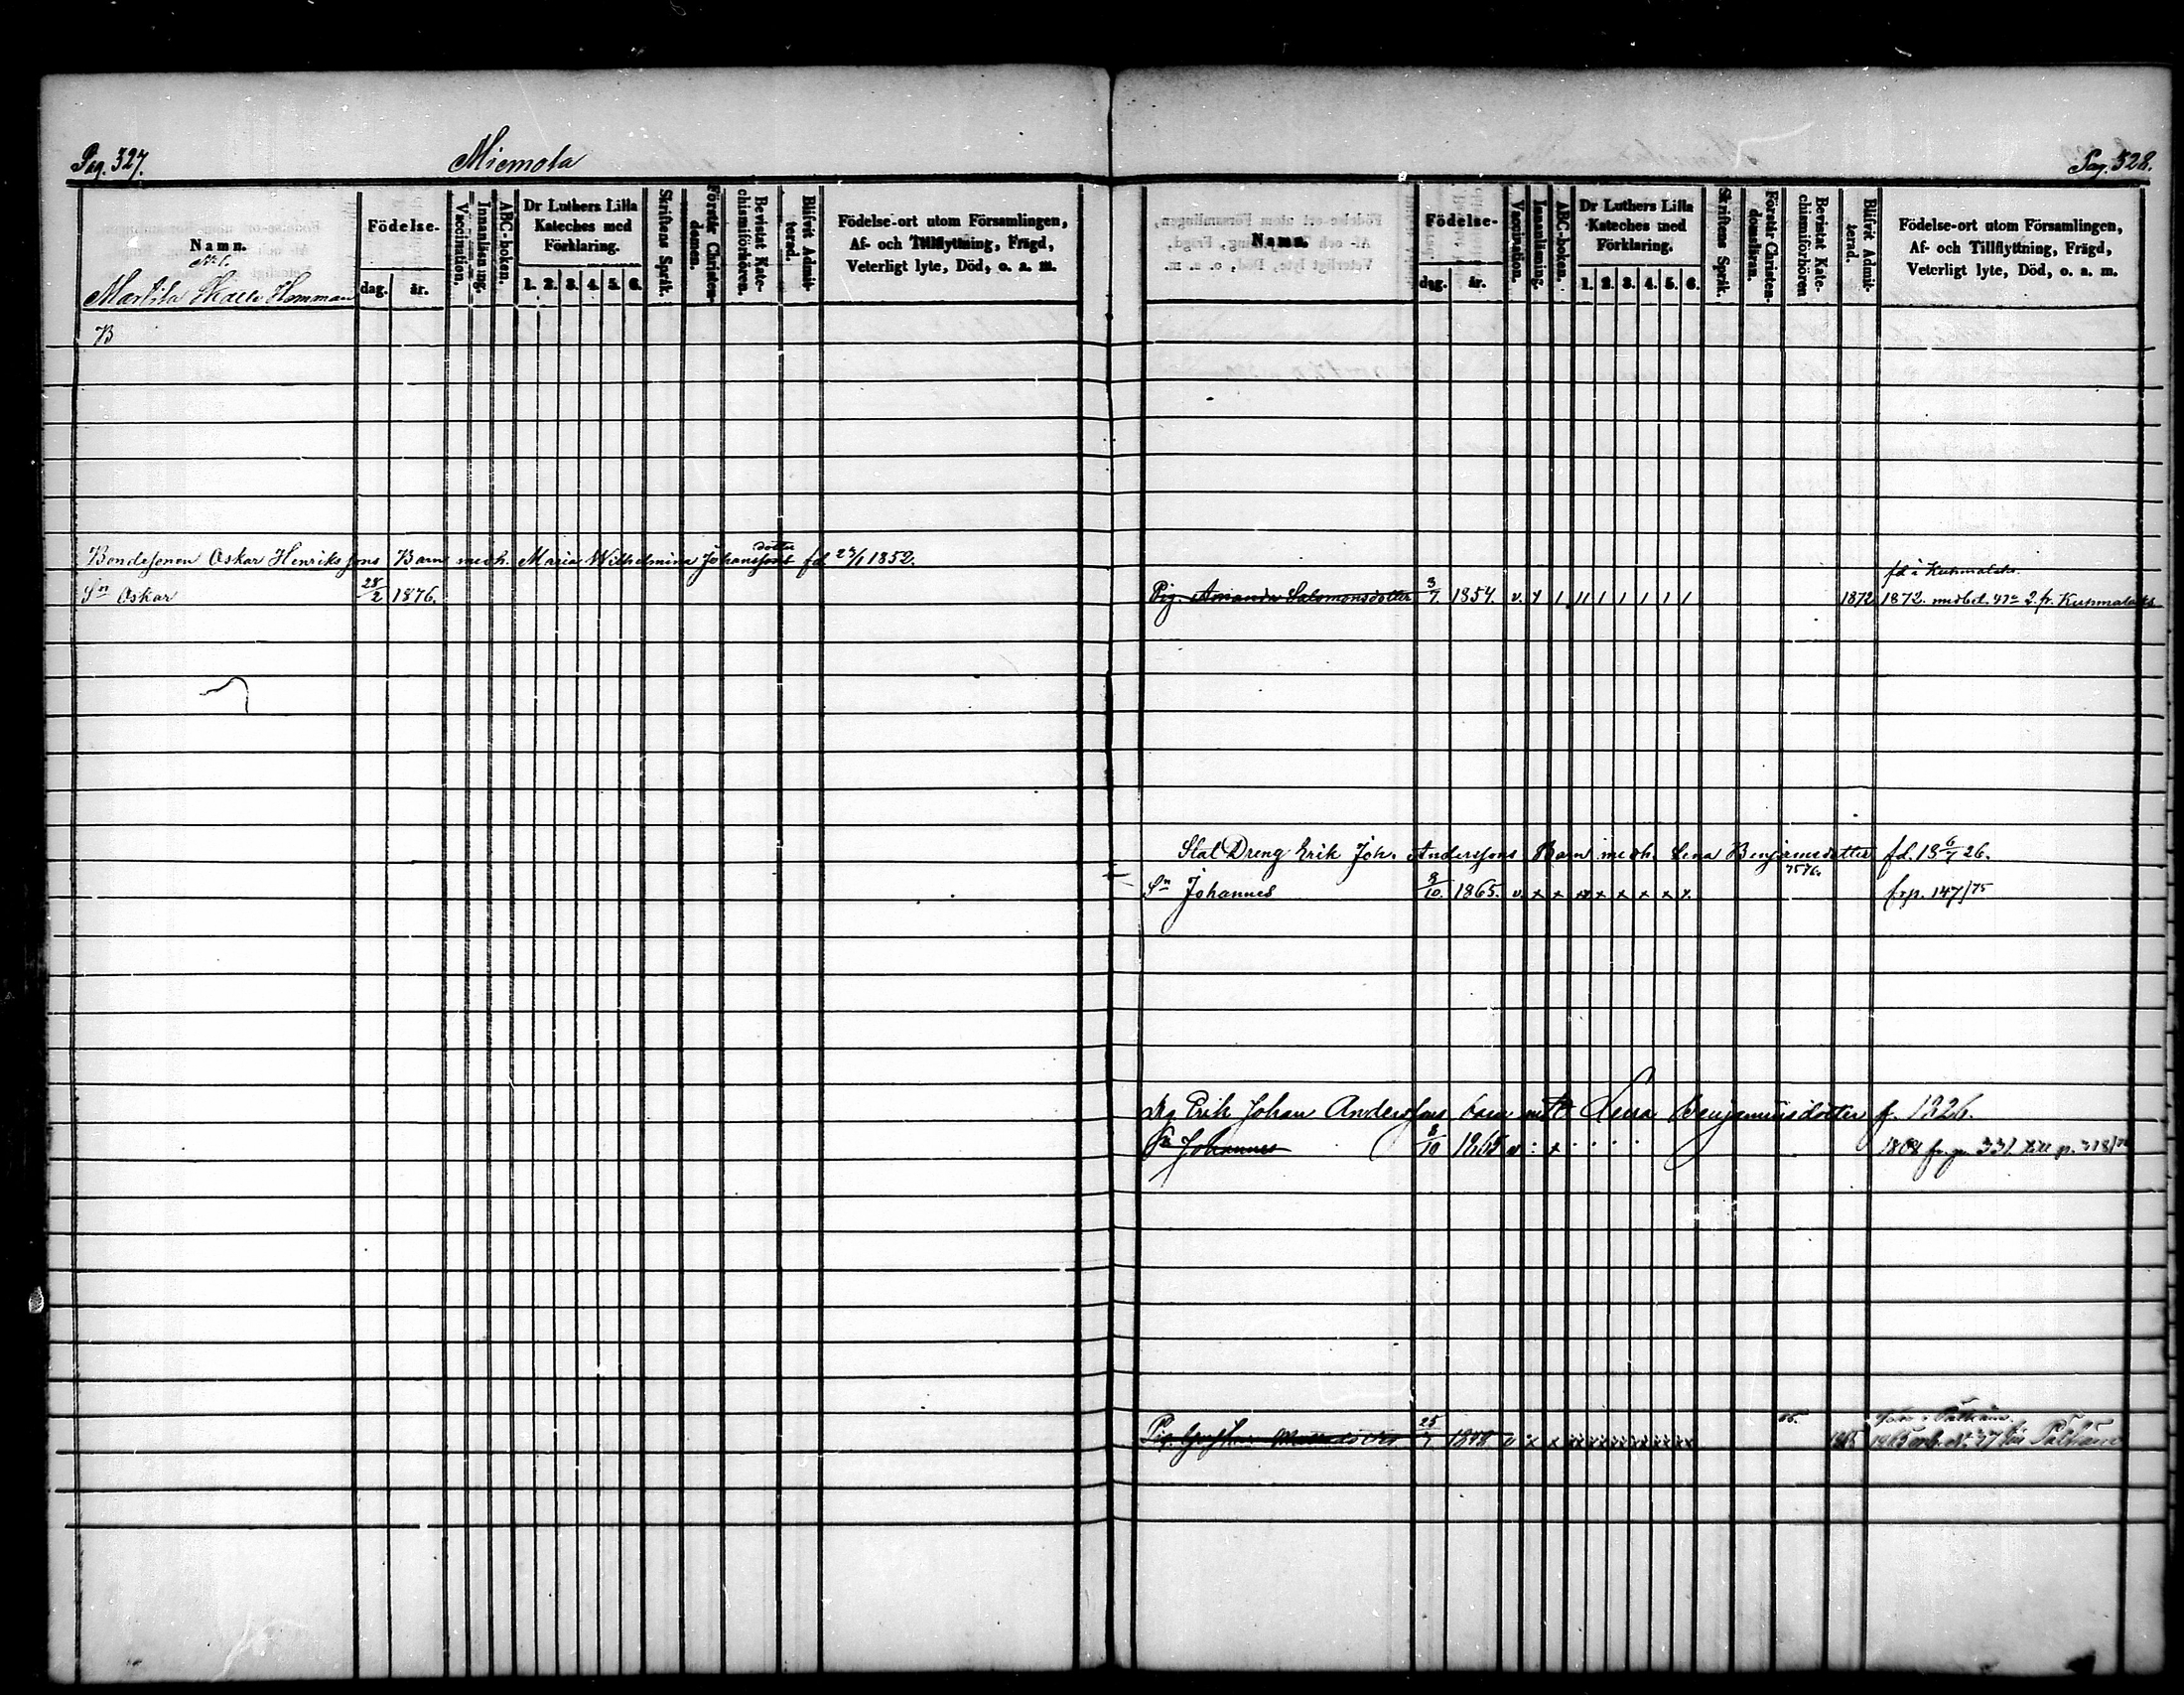 Pag. 327.
Miemola
Namn.
N:o 1.
Marttila Skatte Hemman
Födelse-
dag. år.
Vaccination.
Innanläsning.
ABC-boken.
Dr Luthers Lilla
Kateches med
Förklaring.
1. 2. 3. 4. 5. 6.
Skriftens Språk.
Förstår Christen-
domen.
Bevistat Kate-
chismiförhören.
Blifvit Admit-
terad.
Födelse-ort utom Församlingen,
Af- och Tillflyttning, Frägd,
Veterligt lyte, Död, o. a. m.
B
Bondesonen Oskar Henrikssons Barn med h. Maria Wilhelmina Johansdotter fd 1852.
Sn Oskar 28/2 1876.
Pag. 328.
Namn.
Födelse-
dag. år.
Vaccination.
Innanläsning.
ABC-boken.
Dr Luthers Lilla
Kateches med
Förklaring.
1. 2. 3. 4. 5. 6.
Skriftens Språk.
Förstår Christen-
domsläran.
Bevistat Kate-
chismiförhören
Blifvit Admit-
terad.
Födelse-ort utom Församlingen,
Af- och Tillflyttning, Frägd,
Veterligt lyte, Död, o. a. m.
fd i
Pig. Amanda Salomonsdotter 3/7 1854. v. 1872 1872. med bet. 2. fr.
Dreng Erik Joh. Anderssons Barn med h. Lena Benjaminsdotter fd. 18 6/7 26.
75 76.
Sn Johannes 8/10 1865. v. x x x x x x x x fr p. 147/75
Drg Erik Johan Anderssons barn med h. Lena Benjaminsdotter f. 1826.
Sn Johannes 8/10 1865 v x 1868 fr. p. 331. till p. 318
Pig. 25/7 v x x 1865 1865